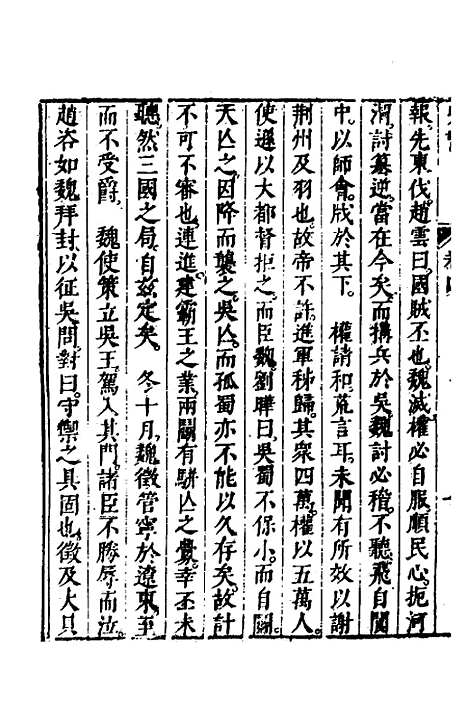 報先東伐趙雲曰國賊丕也魏滅權必自服順民心扼河
渭討篡逆當在今矣而搆兵於吳魏討必稽不聽飛自閬
中以師會戕於其下　權請和荒言耳未聞有所效以謝
荆州及羽也故帝不許進軍秭歸其衆四萬權以五萬人
使遜以大都督拒之而臣魏劉曄曰吳蜀不保小而自鬭
天亾之因降而襲之吳亾而孤蜀亦不能以久存矣故計
不可不審也連進建霸王之業兩鬭有駢亾之釁幸丕未
聽然三國之局自兹定矣　冬十月魏徵管寧於遼東至
而不受爵　魏使策立吳王駕入其門諸臣不勝辱而泣
趙咨如魏拜封以征吳問對曰守禦之具固也徵及大只